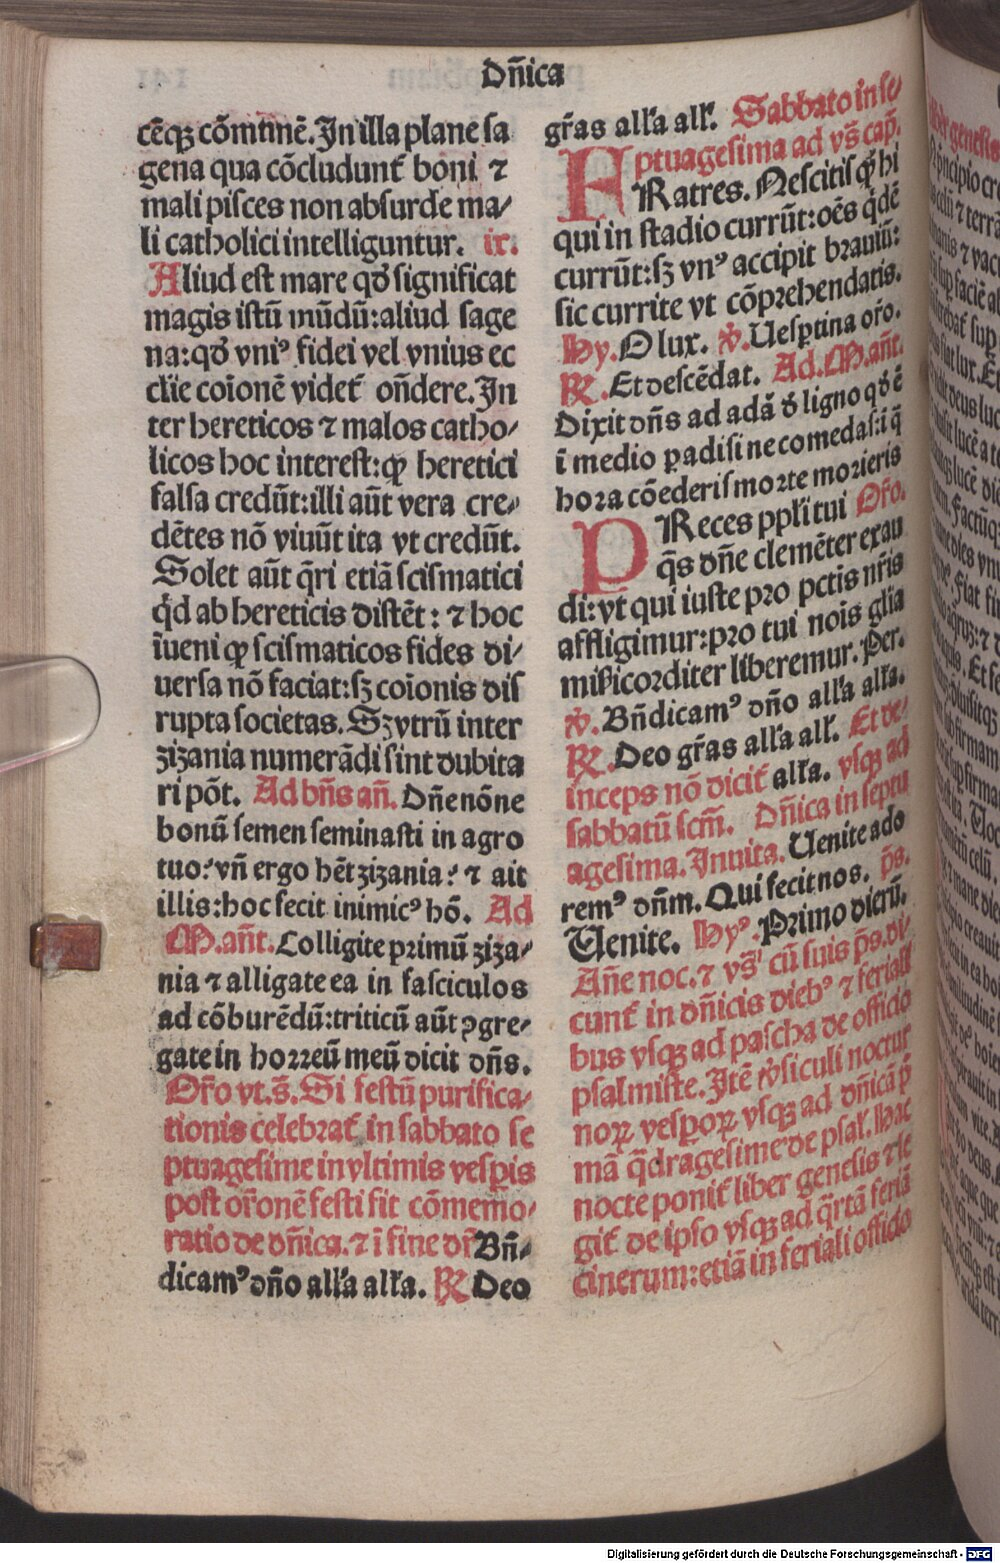 Dn̄ica
cēqꝫ cōmīnē. In illa plane sa
gena qua cōcludunt᷑ boni ⁊
mali pisces non absurde ma/
li catholici intelliguntur. ix.
Aliud est mare qđ significat
magis istū mūdū: aliud sage
na: qđ vniꝰ fidei vel vnius ec
clie coīonē videt᷑ on̄dere. In
ter hereticos ⁊ malos catho/
licos hoc interest: ꝙ heretici
falsa credūt: illi aūt vera cre/
dētes nō viuūt ita vt credūt.
Solet aūt q̄ri etiā scismatici
qd̄ ab hereticis distēt: ⁊ hoc
īueni ꝙ scismaticos fides di/
uersa nō faciat: sꝫ coīonis dis
rupta societas. Sꝫ vtrū inter
zizania numerādi sint dubita
ri pōt. Ad bn̄s an̄. Dn̄e nōne
bonū semen seminasti in agro
tuo? vn̄ ergo hēt zizania? ⁊ ait
illis: hoc fecit inimicꝰ hō. Ad
M. an̄t. Colligite primū ziza/
nia ⁊ alligate ea in fasciculos
ad cōburēdū: triticū aūt ↄgre/
gate in horreū meū dicit dn̄s.
Or̄o vt. s̄. Si festū purifica/
tionis celebrat᷑ in sabbato se
ptuagesime in vltimis vesꝑis
post or̄onē festi fit cōmemo/
ratio de dn̄ica. ⁊ ī fine dr̄ Bn̄/
dicamꝰ dn̄o all'a all'a. ℞ Deo
gr̄as all'a all'. Sabbato in se/
ptuagesima ad vs̄ cap̄.
FRatres. Nescitis ꝙ hi
qui in stadio currūt: oēs qd̄ē
currūt: sꝫ vnꝰ accipit brauiū:
sic currite vt cōprehendatis.
Hy. O lux. ℣. Vespertina or̄o.
℞. Et descēdat. Ad. M. an̄t.
Dixit dn̄s ad adā đ ligno qđ ē
ī medio ꝑadisi ne comedas: ī q̄
hora cōederis morte morieris
PReces ppl'i tui Or̄o.
q̄s dn̄e clemēter exau
di: vt qui iuste pro pctis nr̄is
affligimur: pro tui nois glīa
mīsicorditer liberemur. Per.
℣. Bn̄dicamꝰ dn̄o all'a all'a.
℞. Deo gr̄as all'a all'. Et de/
inceps nō dicit᷑ all'a. vsqꝫ ad
sabbatū scm̄. Dn̄ica in septu
agesima. Inuita. Venite ado
remꝰ dn̄m. Qui fecit nos. p̄s.
Venite. Hyꝰ. Primo dierū.
An̄e noc. ⁊ vs̄' cū suis p̄s. di/
cunt᷑ in dn̄icis diebꝰ ⁊ feriali
bus vsqꝫ ad pascha de officio
psalmiste. Itē ℣siculi noctur
noꝝ vesꝑoꝝ vsqꝫ ad dn̄icā p̄
mā q̄dragesime de psal'. Hac
nocte ponit᷑ liber genesis ⁊ le
git᷑ de ipso vsqꝫ ad q̄rtā feriā
cinerum: etiā in feriali officio
Digitalisierung gefördert durch die Deutsche Forschungsgemeinschaft - DFG